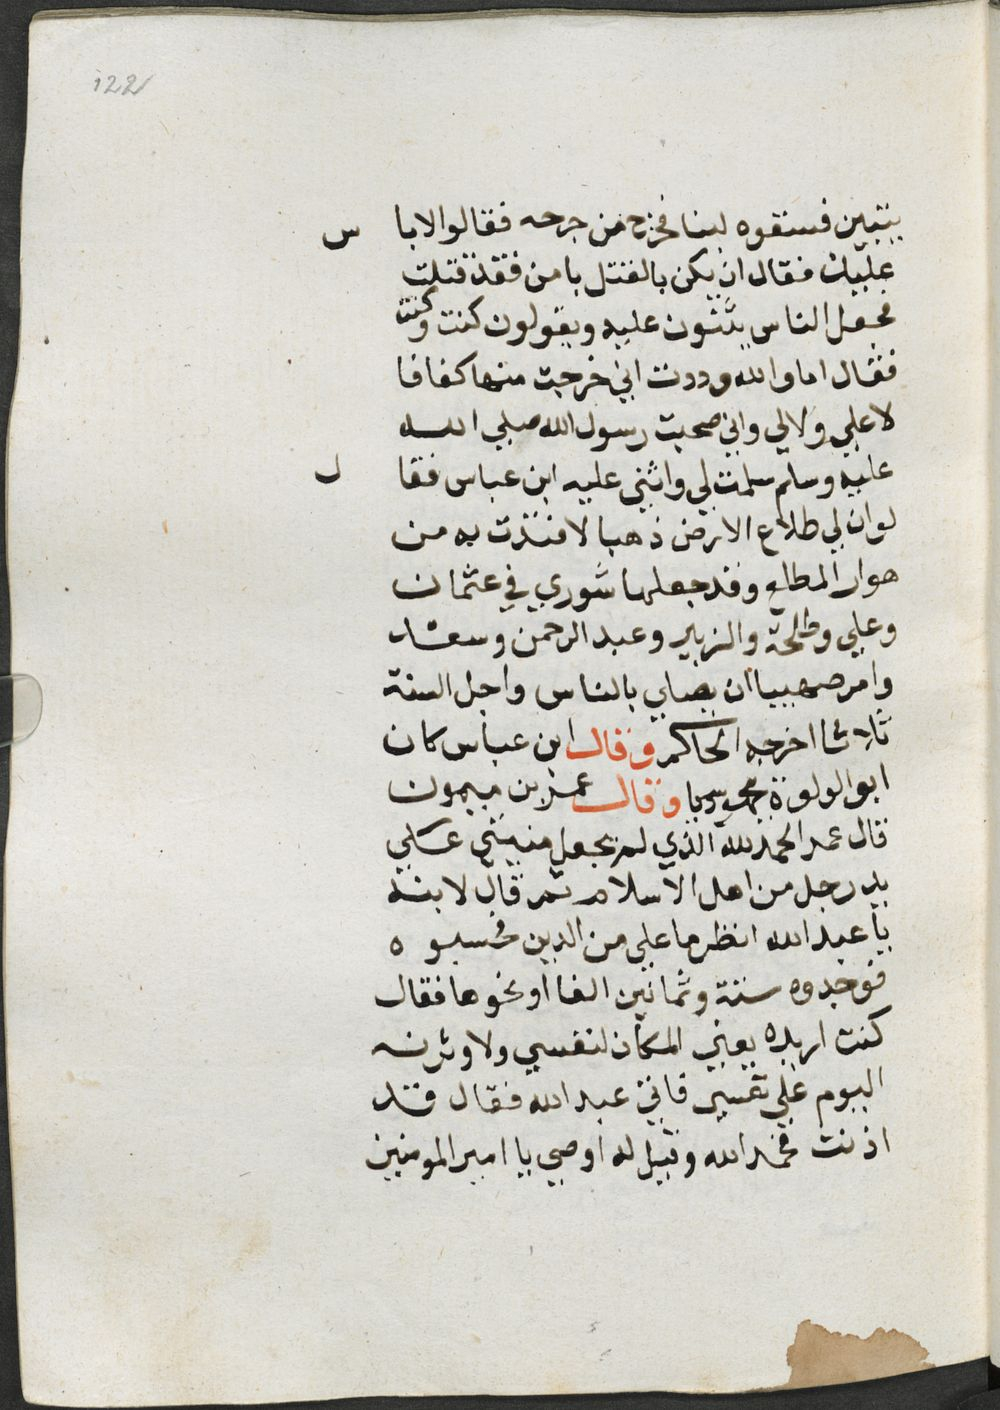 122
يتبين فسقوه لبنا فخرج من جرحه فقالوا لا با س
عليك فقال ان يكن بالقتل باس فقد قتلت
فجعل الناس يثنون عليه ويقولون كنت وكنت
فقال اما والله وددت اني خرجت منها كفافا
لا علي ولا لي واني صحبت رسول الله صلي الله
عليه وسلم سلمت لي واثني عليه ابن عباس فقا ل
لو ان لي طلاع الارض ذهبا لافتديت به من
هول المطلع وقد جعلها شوري في عثمان
وعلي وطلحة والزبير وعبد الرحمن وسعد
وامر صهيبا ان يصلي بالناس واجل الستة
ثلاثا اخرجه الحاكم وقال ابن عباس كان
ابو الولوة مجوسيا وقال عمرو بن ميمون
قال عمر الحمد لله الذي لم يجعل منيتي علي
يد رجل من اهل الاسلام ثم قال لابنه
يا عبد الله انظر ما علي من الدين فحسبوه
فوجدوه ستة وثمانين الفا او نحوها فقال
كنت اريده يعني المكان لنفسي ولاوثرنه
اليوم علي نفسي فاتي عبد الله فقال قد
اذنت فحمد الله وقيل له اوصي يا امير المومنين